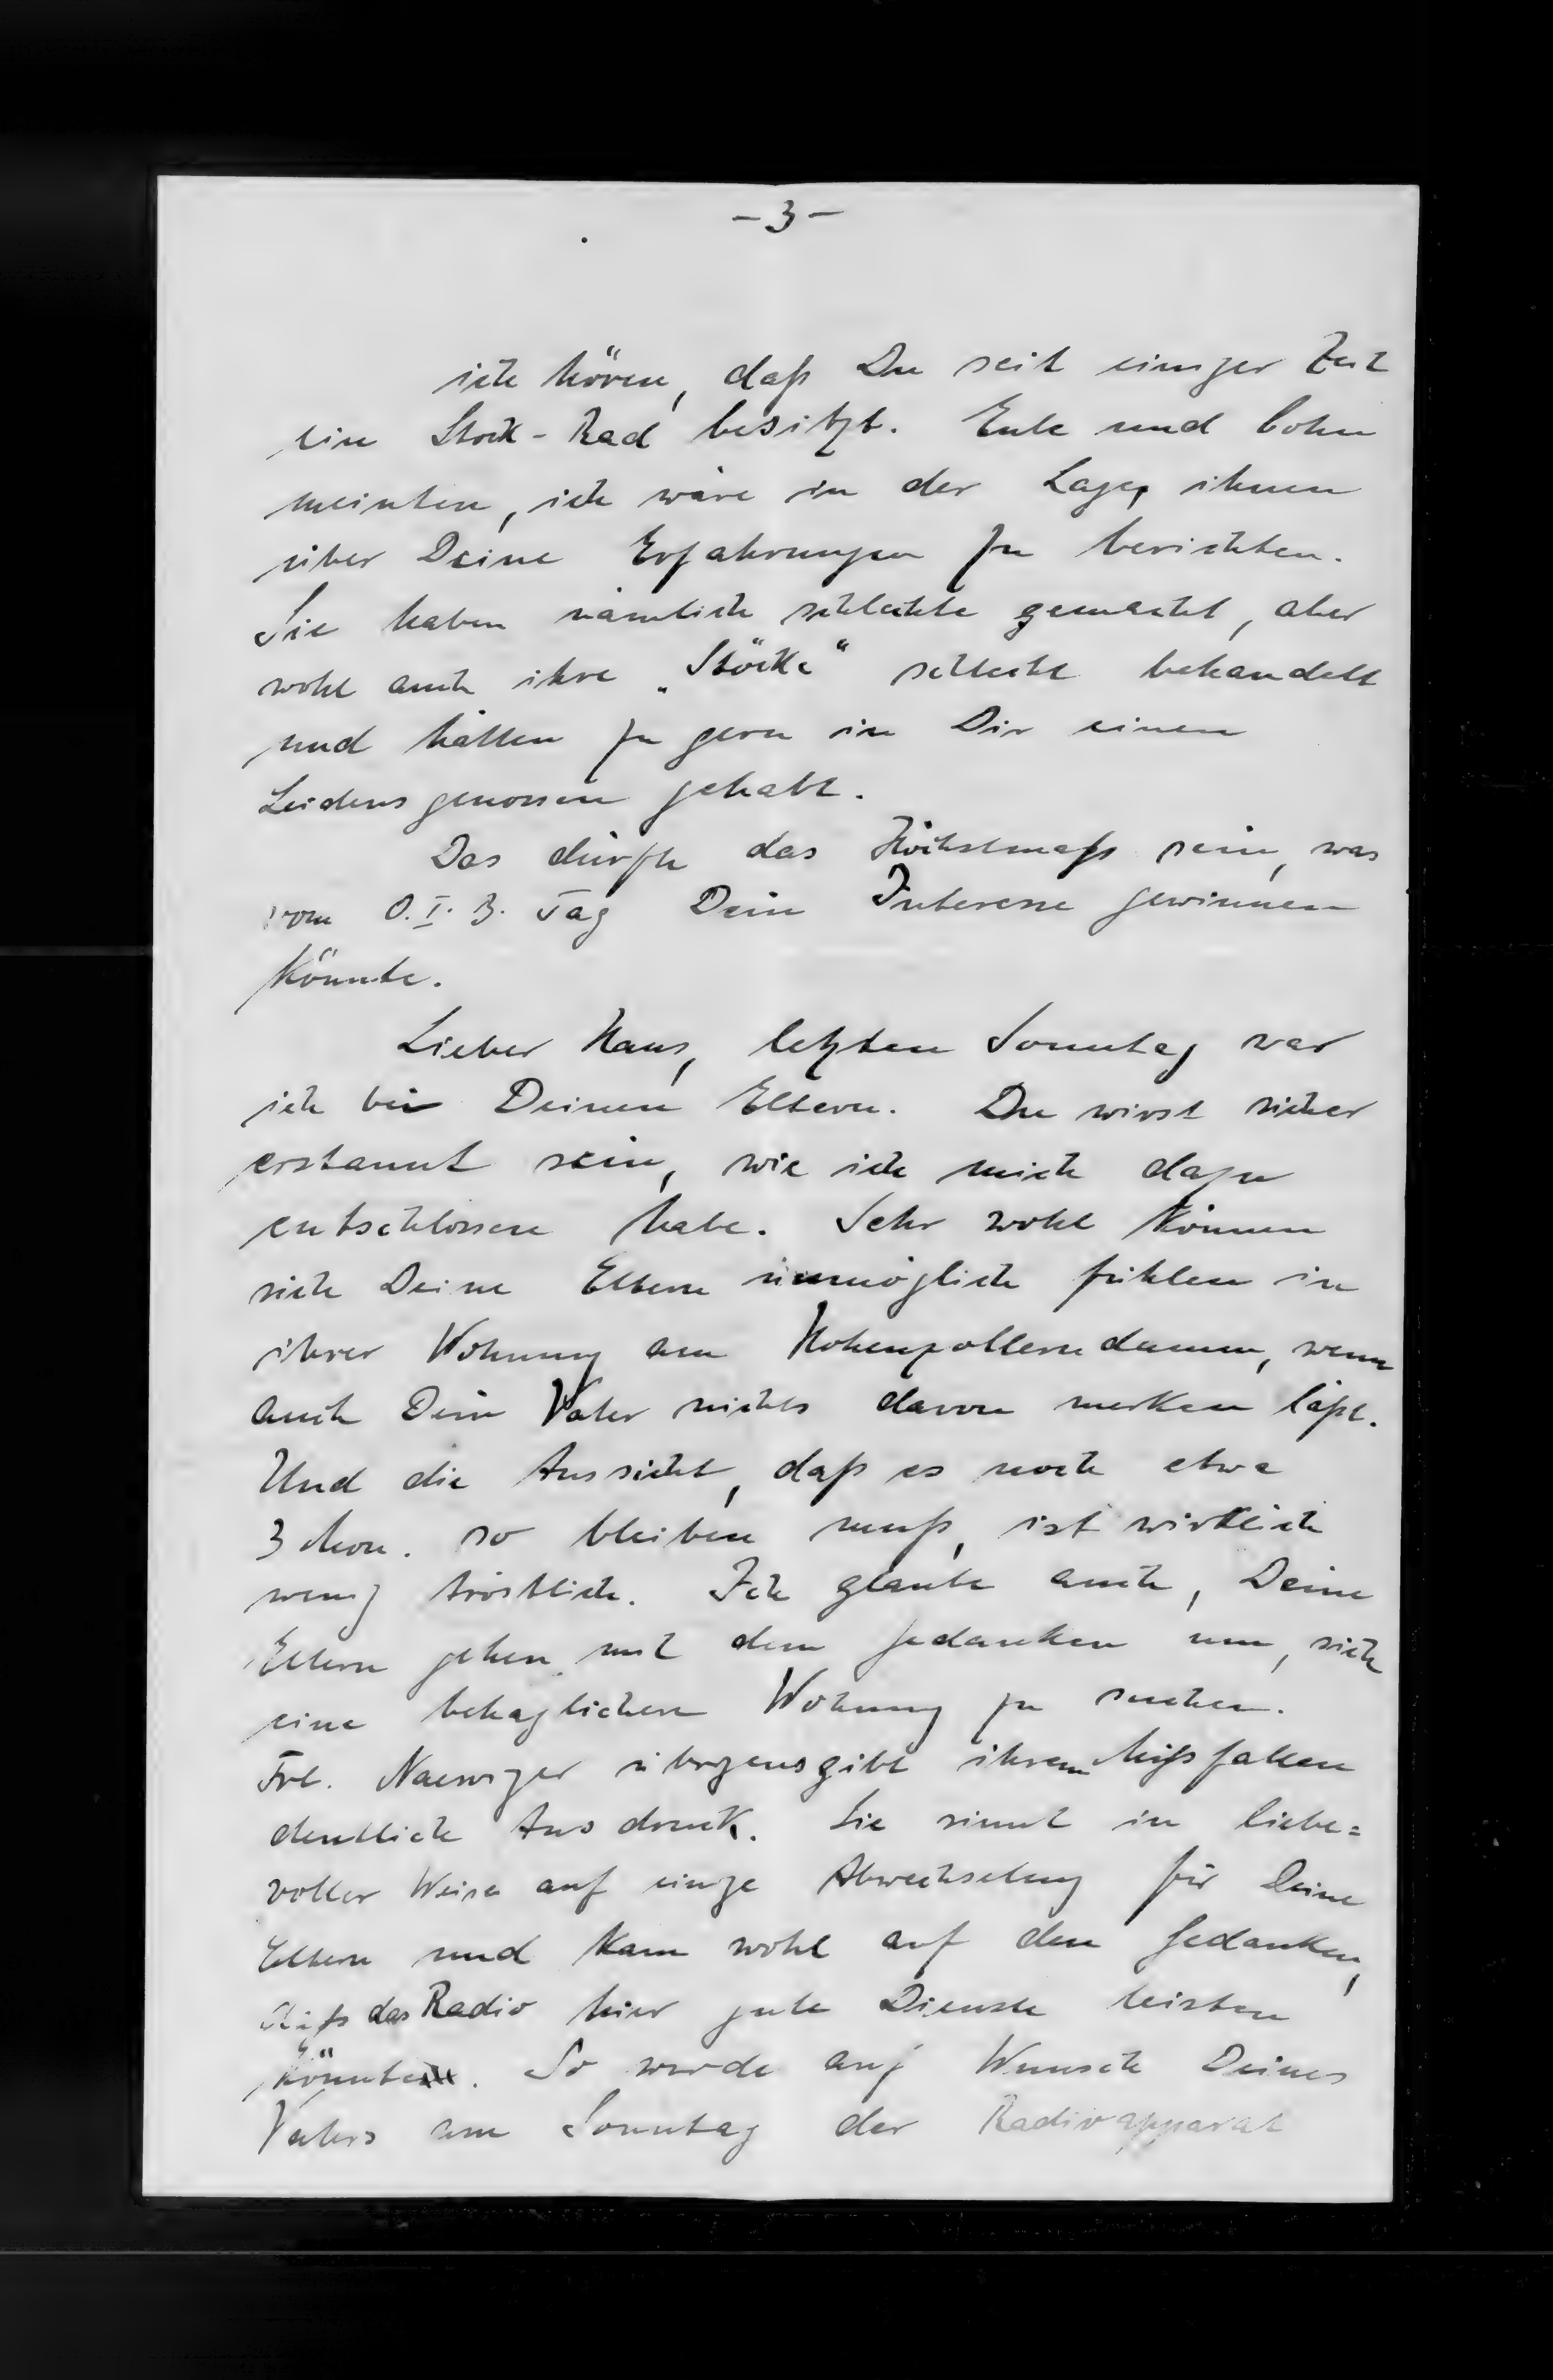 - 3 -
ich hören, daß Du seit einiger Zeit
ein Stock-Rad besitzt. Eule und Bohn
meinten, ich wäre in der Lage, ihnen
über Deine Erfahrungen zu berichten.
Sie haben nämlich schlechte gemacht, aber
wohl auch ihre „Stöcke“ schlecht behandelt
und hätten zu gern in Dir einen
Leidensgenossen gehabt.
Das dürfte das Höchstmaß sein, was
vom O.I.B. Tag Dein Interesse gewinnen
könnte.
Lieber Hans, letzten Sonntag war
ich bei Deinen Eltern. Du wirst sicher
erstaunt sein, wie ich mich dazu
entschlossen habe. Sehr wohl können
sich Deine Eltern unmöglich fühlen in
ihrer Wohnung am Hohenzollerndamm, wenn
auch Dein Vater nichts davon merken läßt.
Und die Aussicht, daß es noch etwa
3 Mon. so bleiben muß, ist wirklich
wenig tröstlich. Ich glaube auch, Deine
Eltern gehen mit dem Gedanken um, sich
eine behaglichere Wohnung zu suchen.
Frl. übrigens gibt ihrem Mißfallen
deutlich Ausdruck. Sie sinnt in liebe=
voller Weise auf einige Abwechselung für Deine
Eltern und kam wohl auf den Gedanken,
daß das Radio hier gute Dienste leisten
könnte. So wurde auf Wunsch Deines
Vaters am Sonntag der Radioapparat